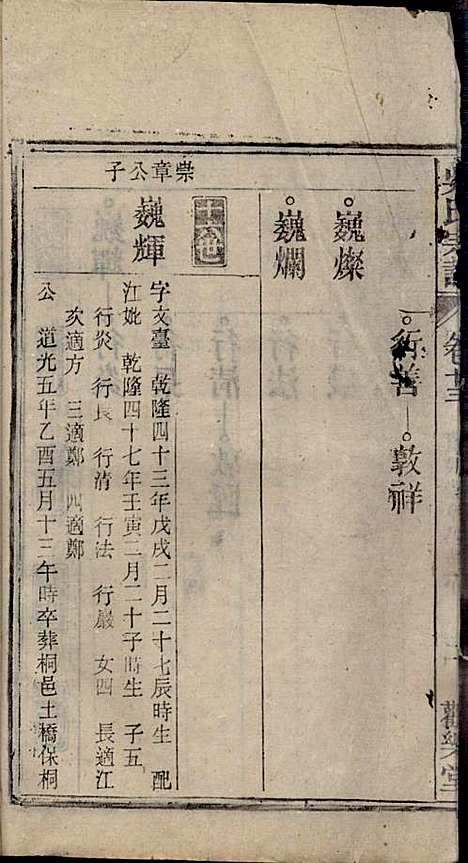 吳氏宗譜 卷十三 觀樂堂
行善 敦祥
巍燦
巍爛
十八世
崇章公子
巍輝
字文臺 乾隆四十三年戊戌二月二十七辰時生 配
江妣 乾隆四十七年壬寅二月二十子時生 子五
行炎 行良 行清 行法 行嚴 女四 長適江
次適方 三適鄭 四適鄭
公 道光五年乙酉五月十三午時卒葬桐邑土橋保桐